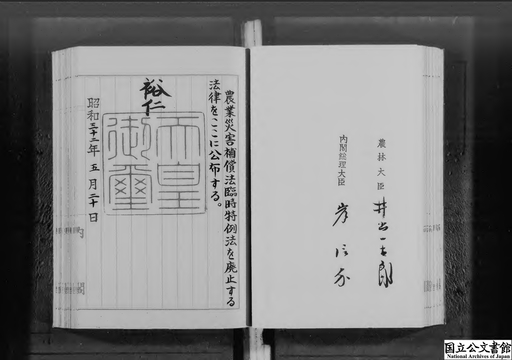 農業災害補償法臨時特例法を廃止する
法律をここに公布する。
裕仁
天皇
御璽
昭和三十二年五月二十日
農林大臣 井出一太郎
内閣総理大臣 岸信介
国立公文書館
National Archives of Japan